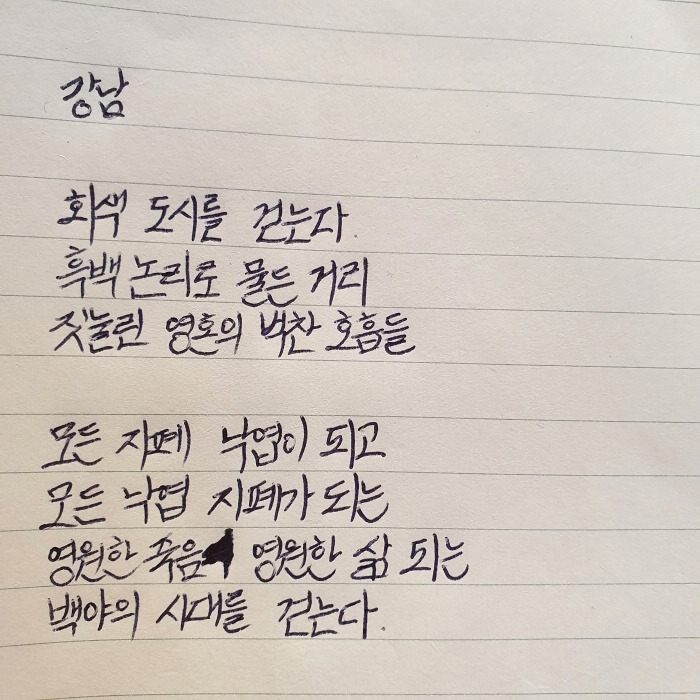 강남
회색 도시를 걷는다.
흑백 논리로 물든 거리
짓눌린 영혼의 벅찬 호흡들
모든 지폐 낙엽이 되고
모든 낙엽 지폐가 되는
영원한 죽음 영원한 삶 되는
백야의 시대를 걷는다.